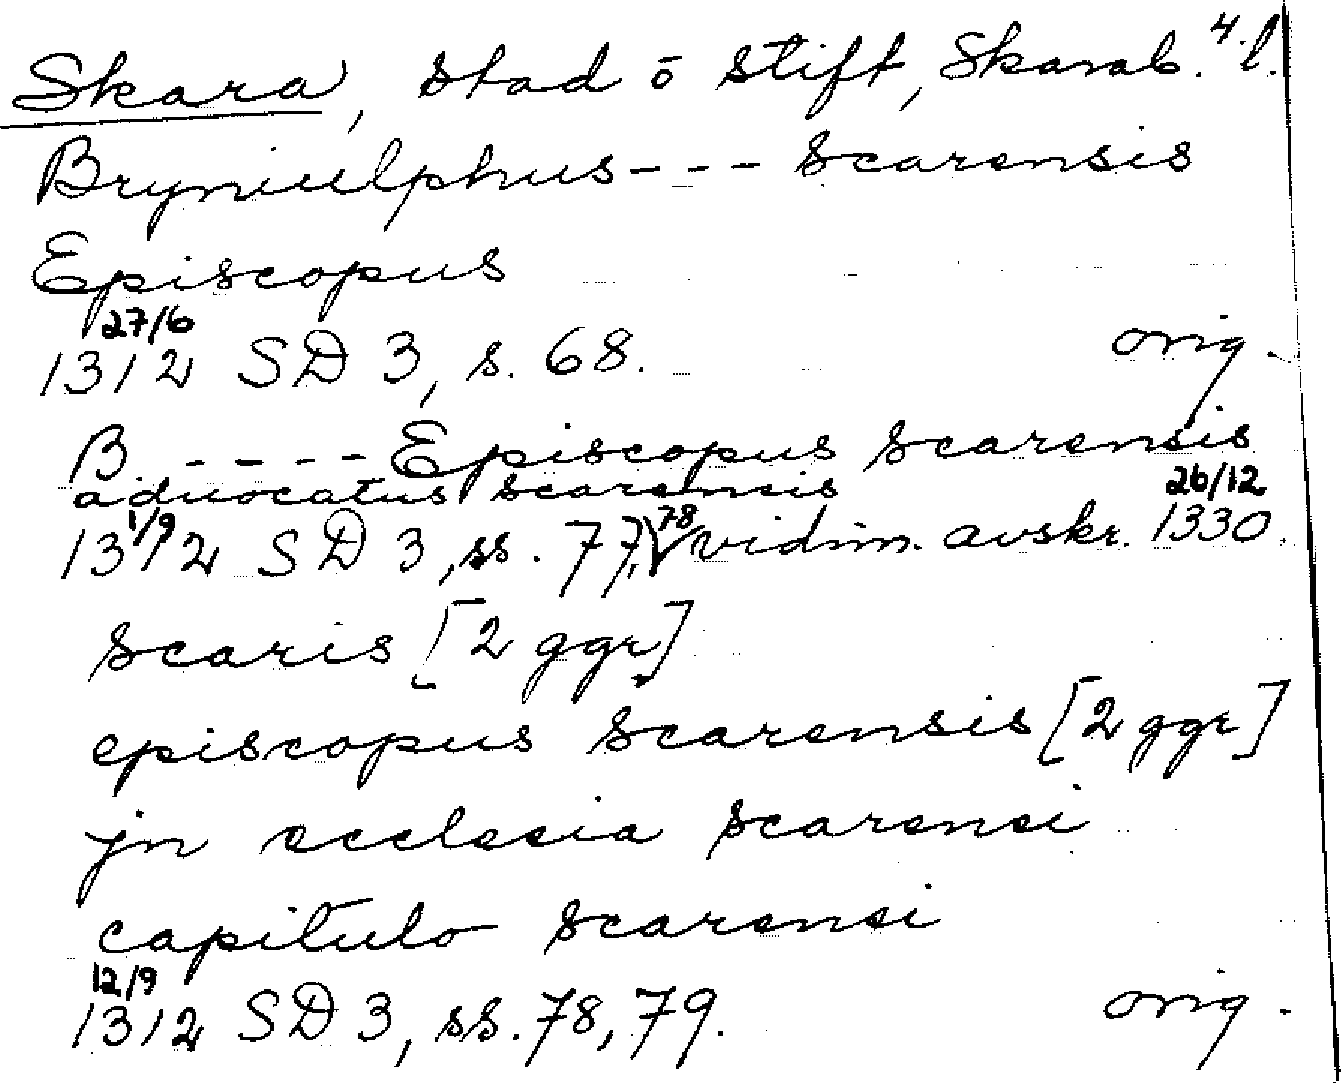 Skara, stad o stift, Skarab. l. 4.
Bryniulphus - - - scarensis
Episcopus
27/6
1312 SD 3, s. 68. orig.
B. - - - - Episcopus scarensis
aduocatus scarensis
1/9 26/12
1312 SD 3, ss. 77, 78 vidim. avskr. 1330.
scaris [2 ggr]
episcopus scarensis [2 ggr]
jn ecclesia scarensi
capitulo scarensi
12/9
1312 SD 3, ss. 78, 79. orig.